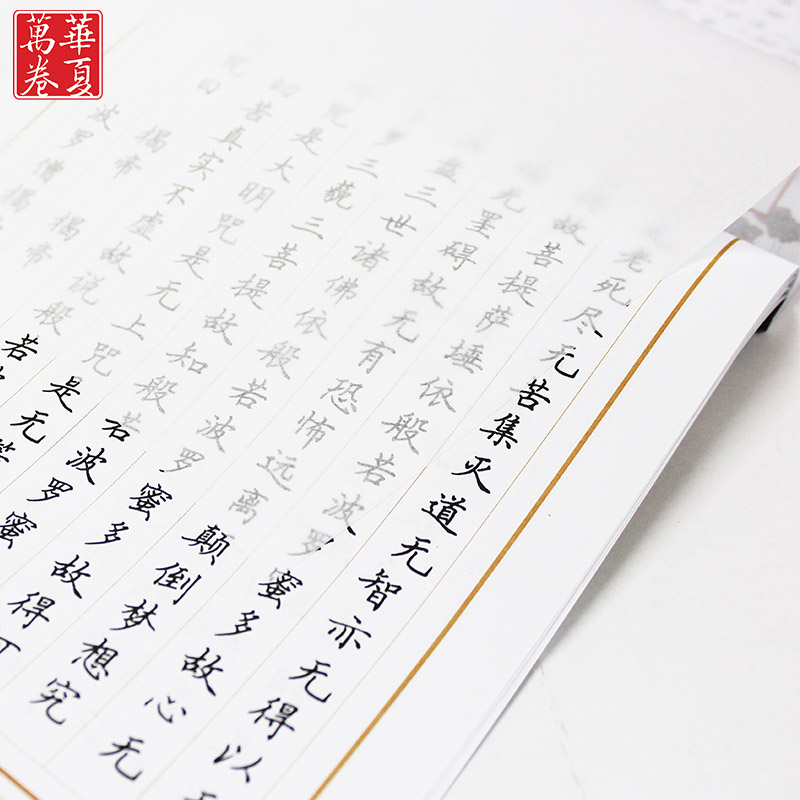 老死尽无苦集灭道无智亦无得以
故菩提萨埵依般若波罗蜜多故心无
无罣碍故无有恐怖远离颠倒梦想究
盘三世诸佛依般若波罗蜜多故得
罗三藐三菩提故知般若波罗蜜
咒是大明咒是无上咒是无等
切苦真实不虚故说般若
咒曰 揭帝
波罗僧揭帝
華夏
萬卷